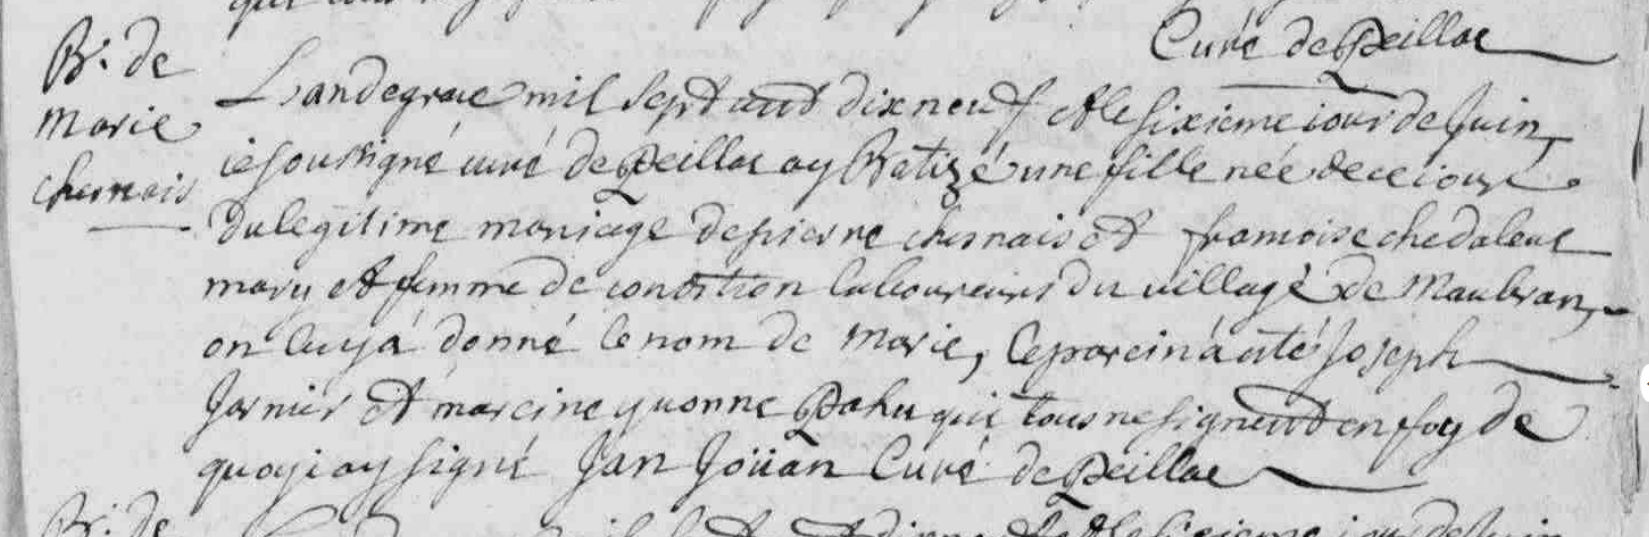 Curé de Peillac
B. de
Marie
chesnais
L'an de grace mil sept cent dix neuf et le sixieme iour de Juin,
ie soussigné curé de Peillac ay Batizé une fille née de ce iour
du legitime mariage de pierre chesnais et francoise chedaleuc
mary et femme de condition laboureurs du village de Maubran,
on luy á donné le nom de Marie, le parein á eté Joseph
Jarnier et mareine yuonne Pahu qui tous ne signent en foy de
quoy i ay signé Jan Joüan Curé de Peillac
B. de